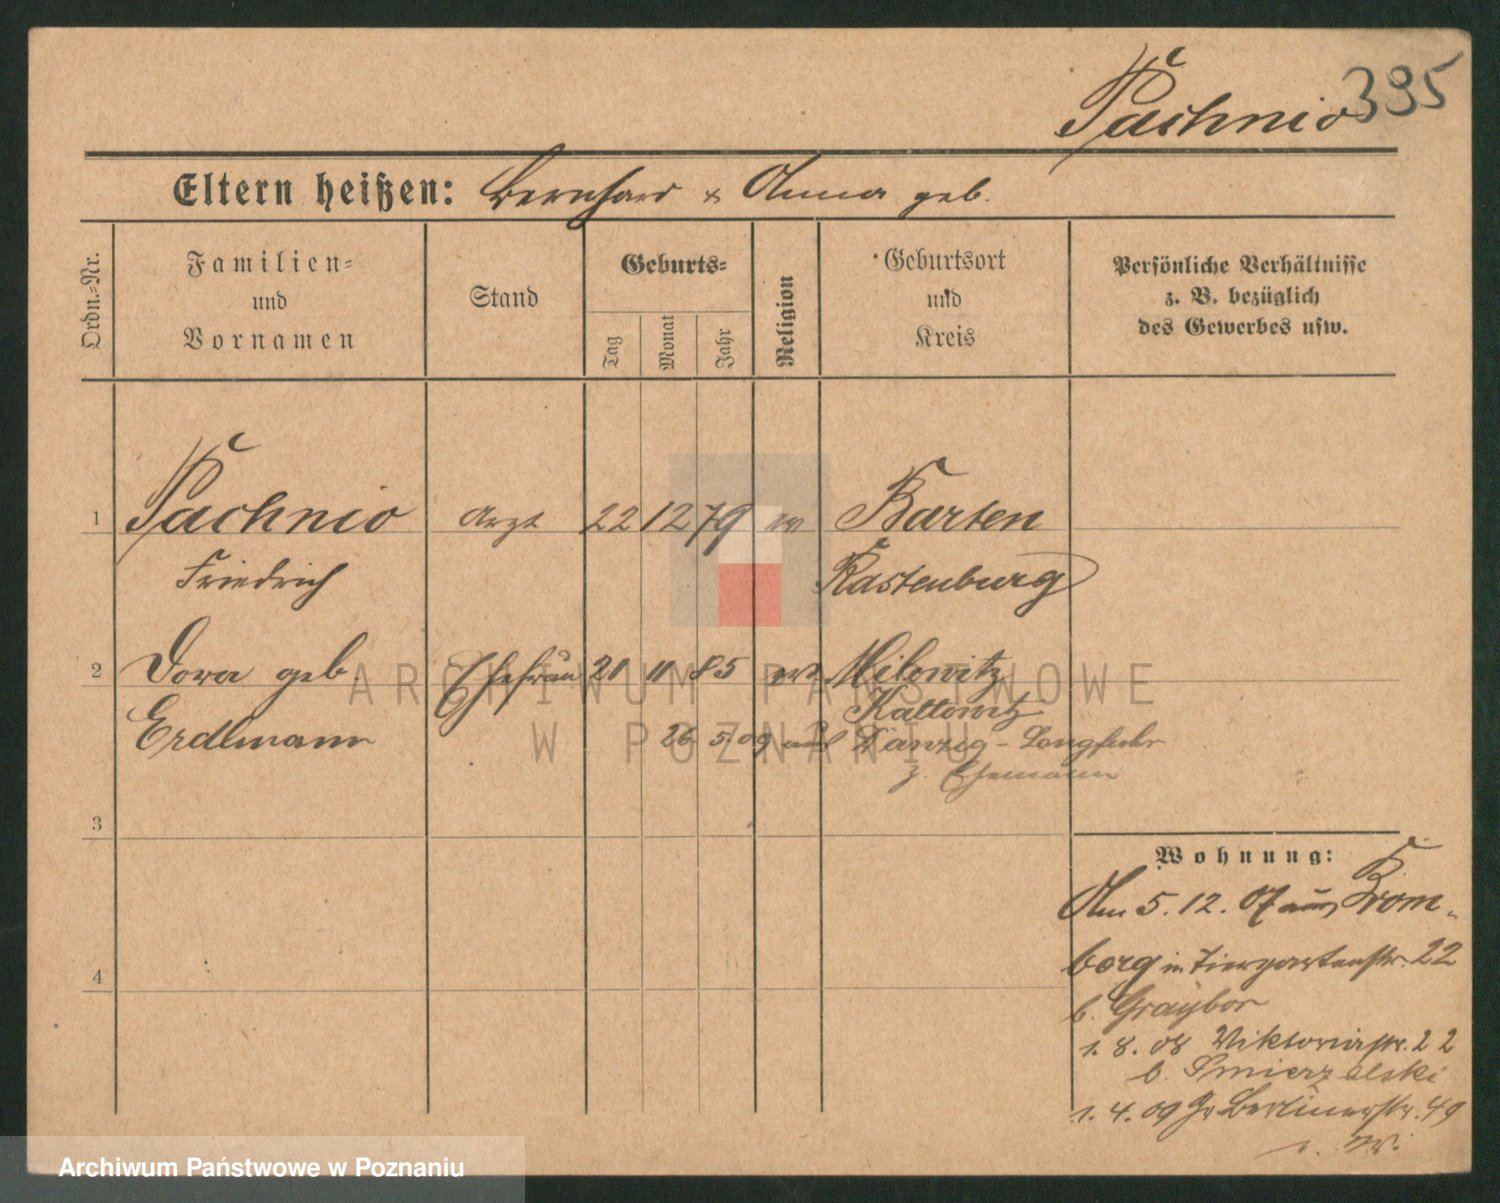 Pachnio 395
Eltern heißen: Bernhard & Anna geb.
Ordn.-Nr.
Familien-
und
Vornamen
Stand
Geburts-
Tag
Monat
Jahr
Religion
Geburtsort
und
Kreis
Persönliche Verhältnisse
z. B. bezüglich
des Gewerbes usw.
1 Pachnio Arzt 22 12 79 ev Barten
Friedrich Rastenburg
2 Dora geb. Ehefrau 21 11 85 ev. Milowitz
Kattowitz
Erdlmann 26. 5. 09 auf Danzig-Langfuhr
z. Ehemann
3
4
Wohnung:
Am 5. 12. 07 aus Brom-
berg in Tiergartenstr. 22
b. Graybor
1. 8. 08 Viktoriastr. 22
b. Smierzalski
1. 4. 09 Gr. Berlinerstr. 49
ARCHIWUM PAŃSTWOWE
W POZNANIU
Archiwum Państwowe w Poznaniu